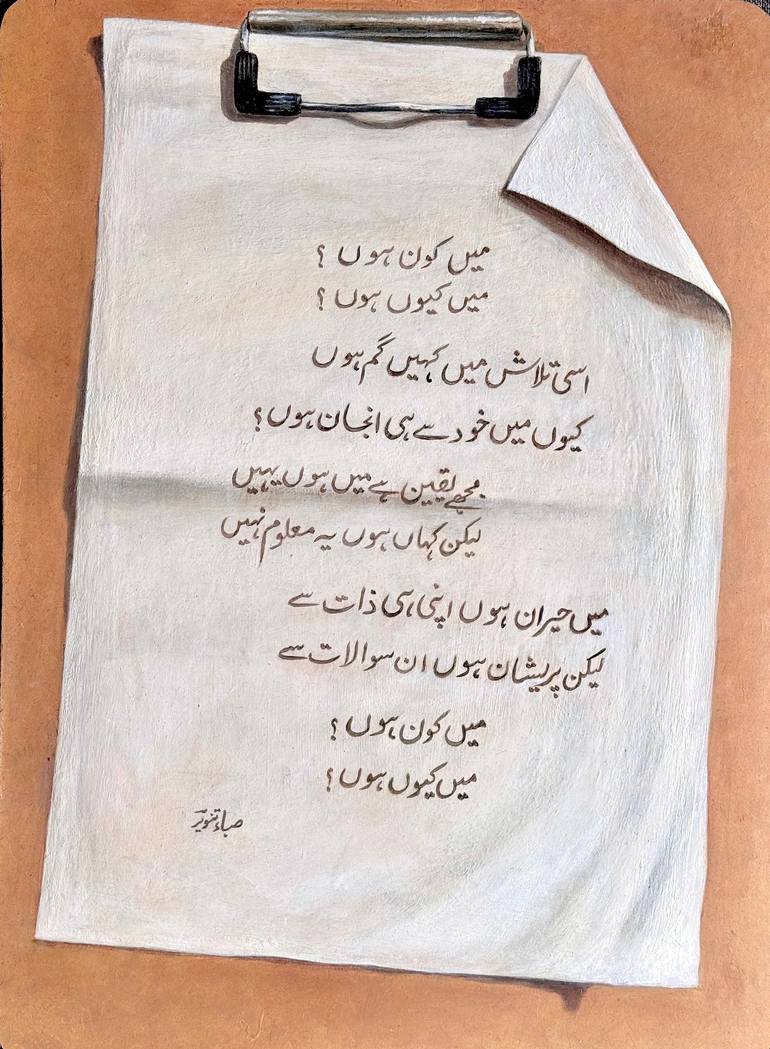 میں کون ہوں ؟
میں کیوں ہوں ؟
اسی تلاش میں کہیں گم ہوں
کیوں میں خود سے ہی انجان ہوں ؟
مجھے یقین ہے میں ہوں یہیں
لیکن کہاں ہوں یہ معلوم نہیں
میں حیران ہوں اپنی ہی ذات سے
لیکن پریشان ہوں ان سوالات سے
میں کون ہوں ؟
میں کیوں ہوں ؟
صباء تنویر